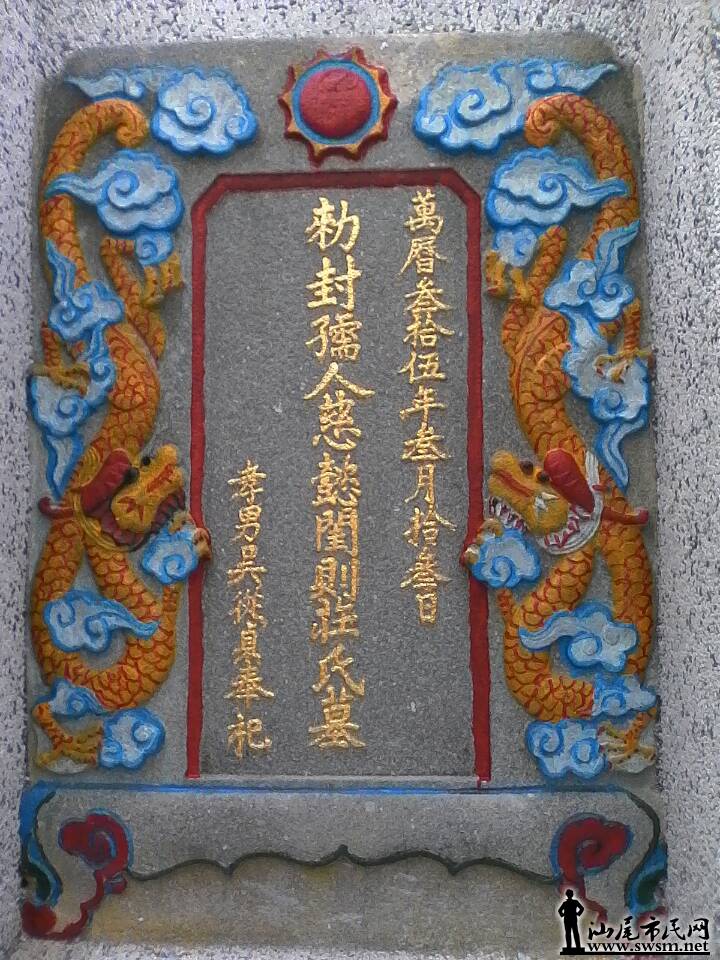 萬曆叁拾伍年叁月拾叁日
勅封孺人慈懿閨則莊氏墓
孝男吳從貞奉祀
汕尾市民网
www.swsm.net